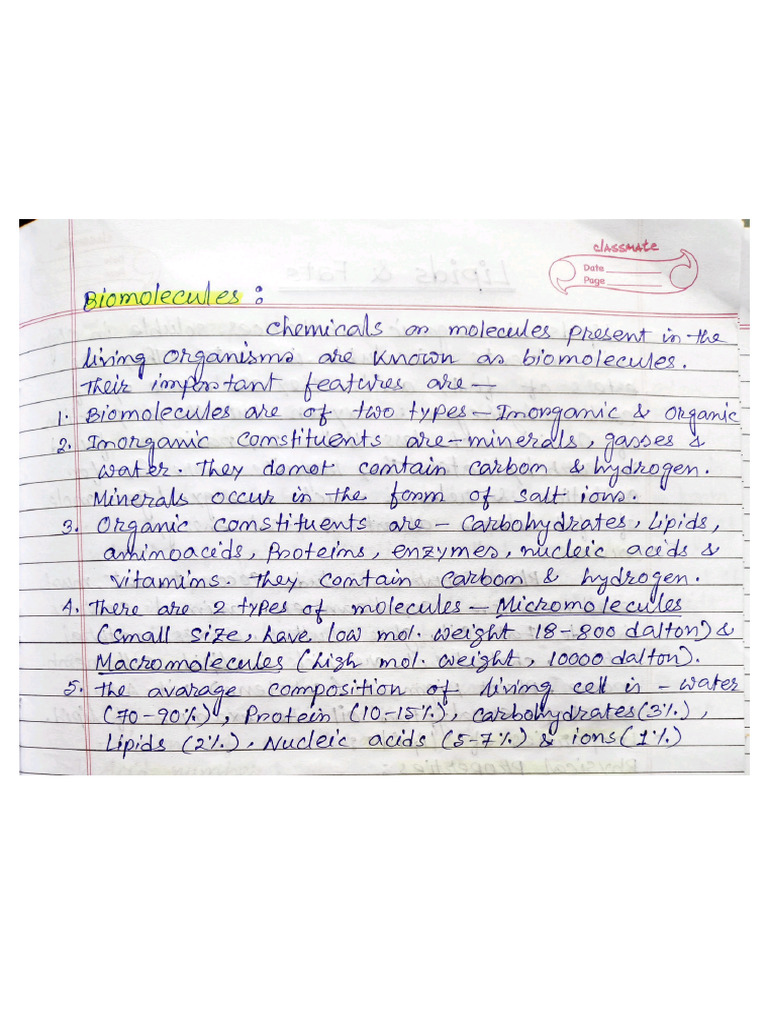 classmate
Date
Page
Biomolecules :
Chemicals or molecules present in the
living organisms are known as biomolecules.
Their important features are :-
1. Biomolecules are of two types - Inorganic & Organic
2. Inorganic constituents are - minerals, gasses &
water. They donot contain carbon & hydrogen.
Minerals occur in the form of salt ions.
3. Organic constituents are - Carbohydrates, Lipids,
aminoacids, Proteins, enzymes, nucleic acids &
vitamins. They contain carbon & hydrogen.
4. There are 2 types of molecules - Micromolecules
(small size, have low mol. weight 18-800 dalton) &
Macromolecules (high mol. weight, 10000 dalton).
5. The avarage composition of living cell is - water
(70-90%), Protein (10-15%), carbohydrates (3%),
Lipids (2%), Nucleic acids (5-7%) & ions (1%)